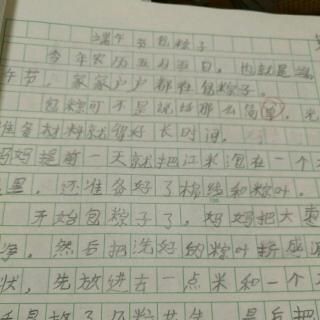 端午节包粽子
今年农历五月五日，也就是端
午节，家家户户都在包粽子。
包粽可不是说的那么简单，光
准备材料就得好长时间。
妈妈提前一天就把江米泡在一个
里，还准备好了棉线和粽叶。
开始包粽子了，妈妈把大枣
净，然后把洗好的粽叶折成
状，先放进去一点米和一个